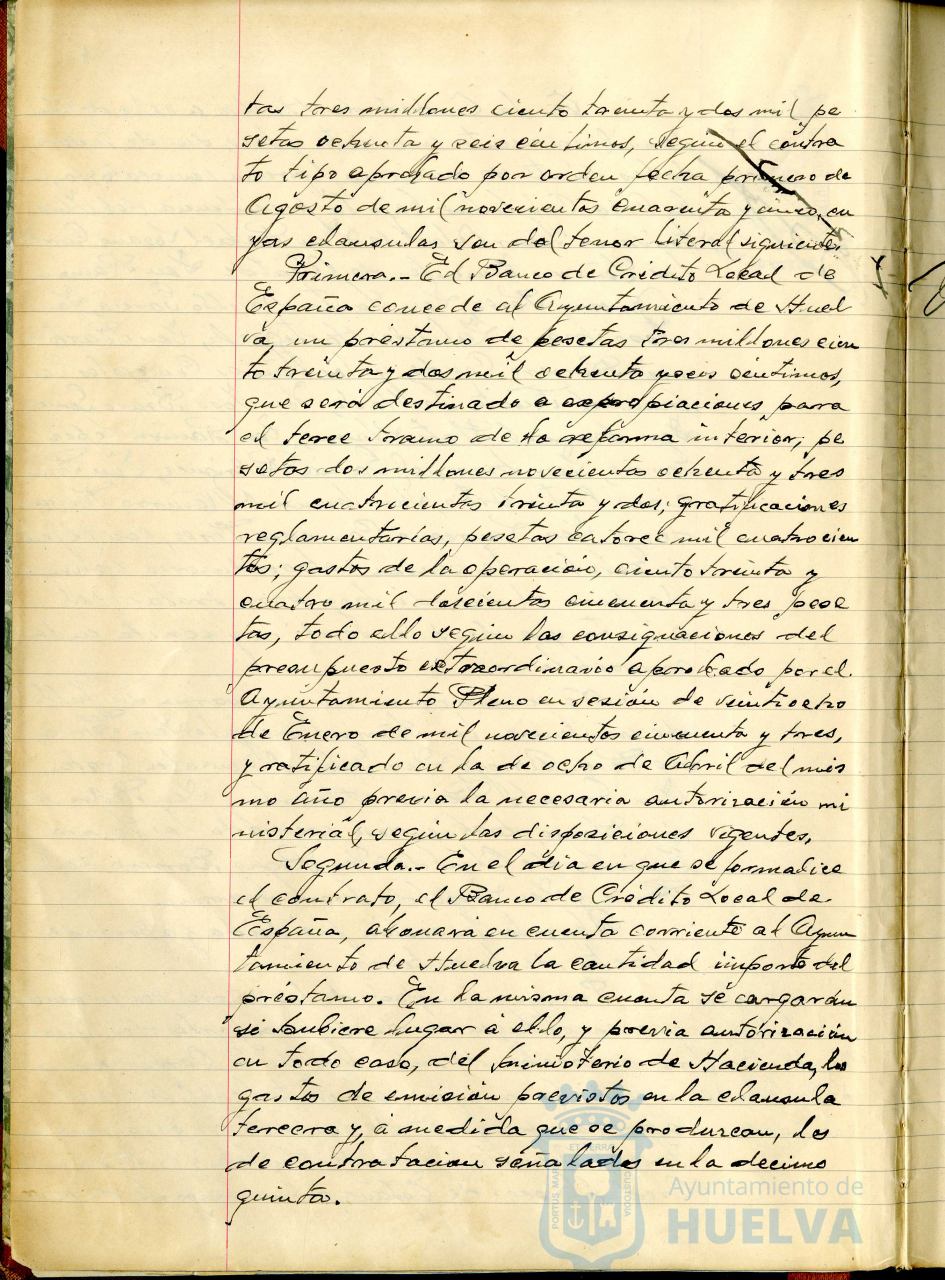 tas tres millones ciento treinta y dos mil pe
setas ochenta y seis céntimos, segun el contra
to tipo aprobado por orden fecha primero de
Agosto de mil novecientos cuarenta y cinco, cu
yas clausulas son del tenor literal siguiente:
Primera.- El Banco de Crédito Local de
España concede al Ayuntamiento de Huel
va, un préstamo de pesetas tres millones cien
to treinta y dos mil ochenta y seis céntimos,
que será destinado a expropiaciones para
el terce tramo de la reforma interior, pe
setas dos millones novecientas ochenta y tres
mil cuatrocientas treinta y dos; gratificaciones
reglamentarias, pesetas catorce mil cuatrocien
tos; gastos de la operación, ciento treinta y
cuatro mil doscientas cincuenta y tres pese
tas, todo ello según las consignaciones del
presupuesto extraordinario aprobado por el
Ayuntamiento Pleno en sesión de veintiocho
de Enero de mil novecientos cincuenta y tres,
y ratificado en la de ocho de Abril del mis
mo año previa la necesaria autorización mi
nisterial, según las disposiciones vigentes.
Segunda.- En el dia en que se formalice
el contrato, el Banco de Crédito Local de
España, abonará en cuenta corriente al Ayun
tamiento de Huelva la cantidad importe del
préstamo. En la misma cuenta se cargarán
si hubiere lugar á ello, y previa autorización
en todo caso, del Ministerio de Hacienda, los
gastos de emisión previstos en la clausula
tercera y, á medida que se produzcan, los
de contratacion señalados en la decimo
quinta.
Ayuntamiento de
HUELVA